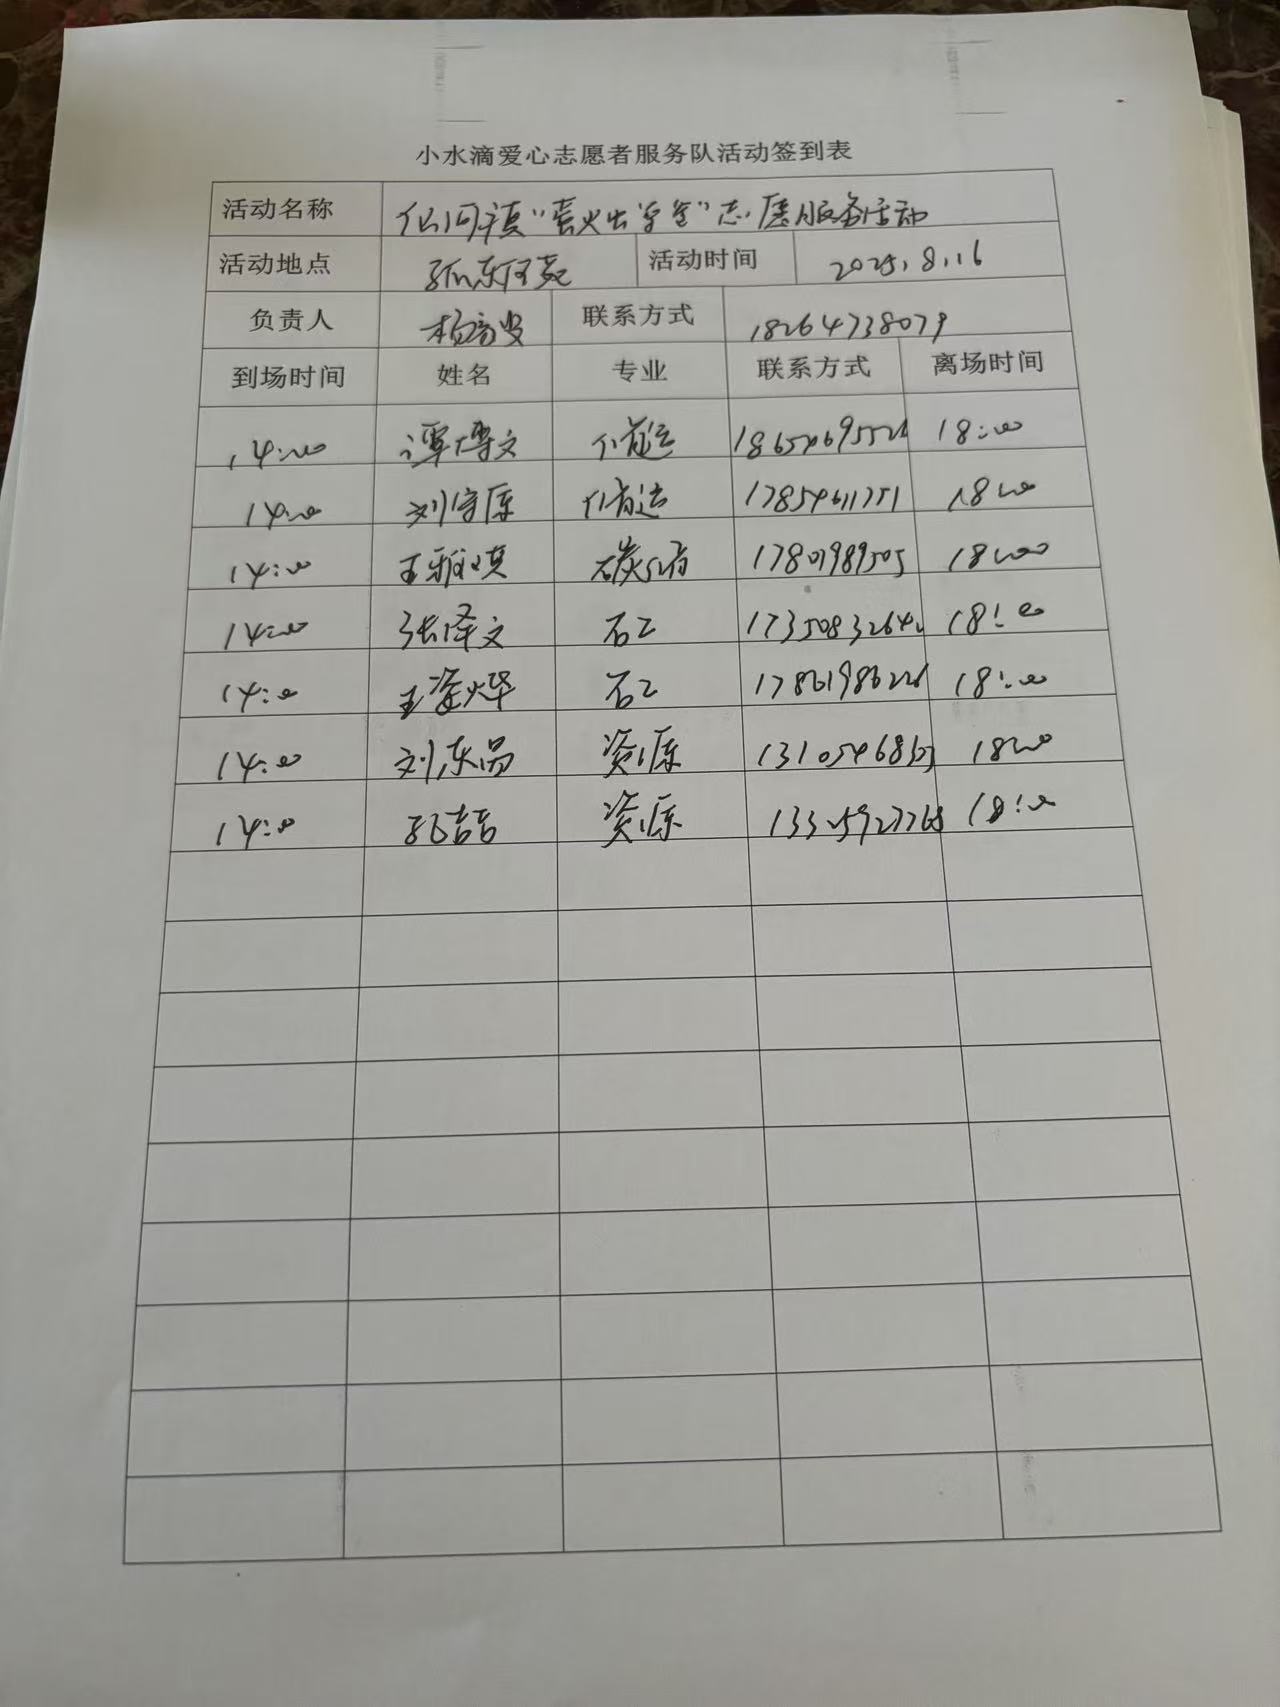 小水滴爱心志愿者服务队活动签到表
活动名称 仙河镇“萤火虫学堂”志愿服务活动
活动地点 孤东河苑 活动时间 2025.8.16
负责人 杨 联系方式 18264738079
到场时间 姓名 专业 联系方式 离场时间
14:00 谭博文 储运 18:00
14:00 刘守 储运 17854611751 18:00
14:00 王雅琪 碳储 17801989505 18:00
14:00 张泽文 石工 18:00
14:00 王姿烨 石工 18:00
14:00 刘东昌 资源 18:00
14:00 孙喆 资源 18:00